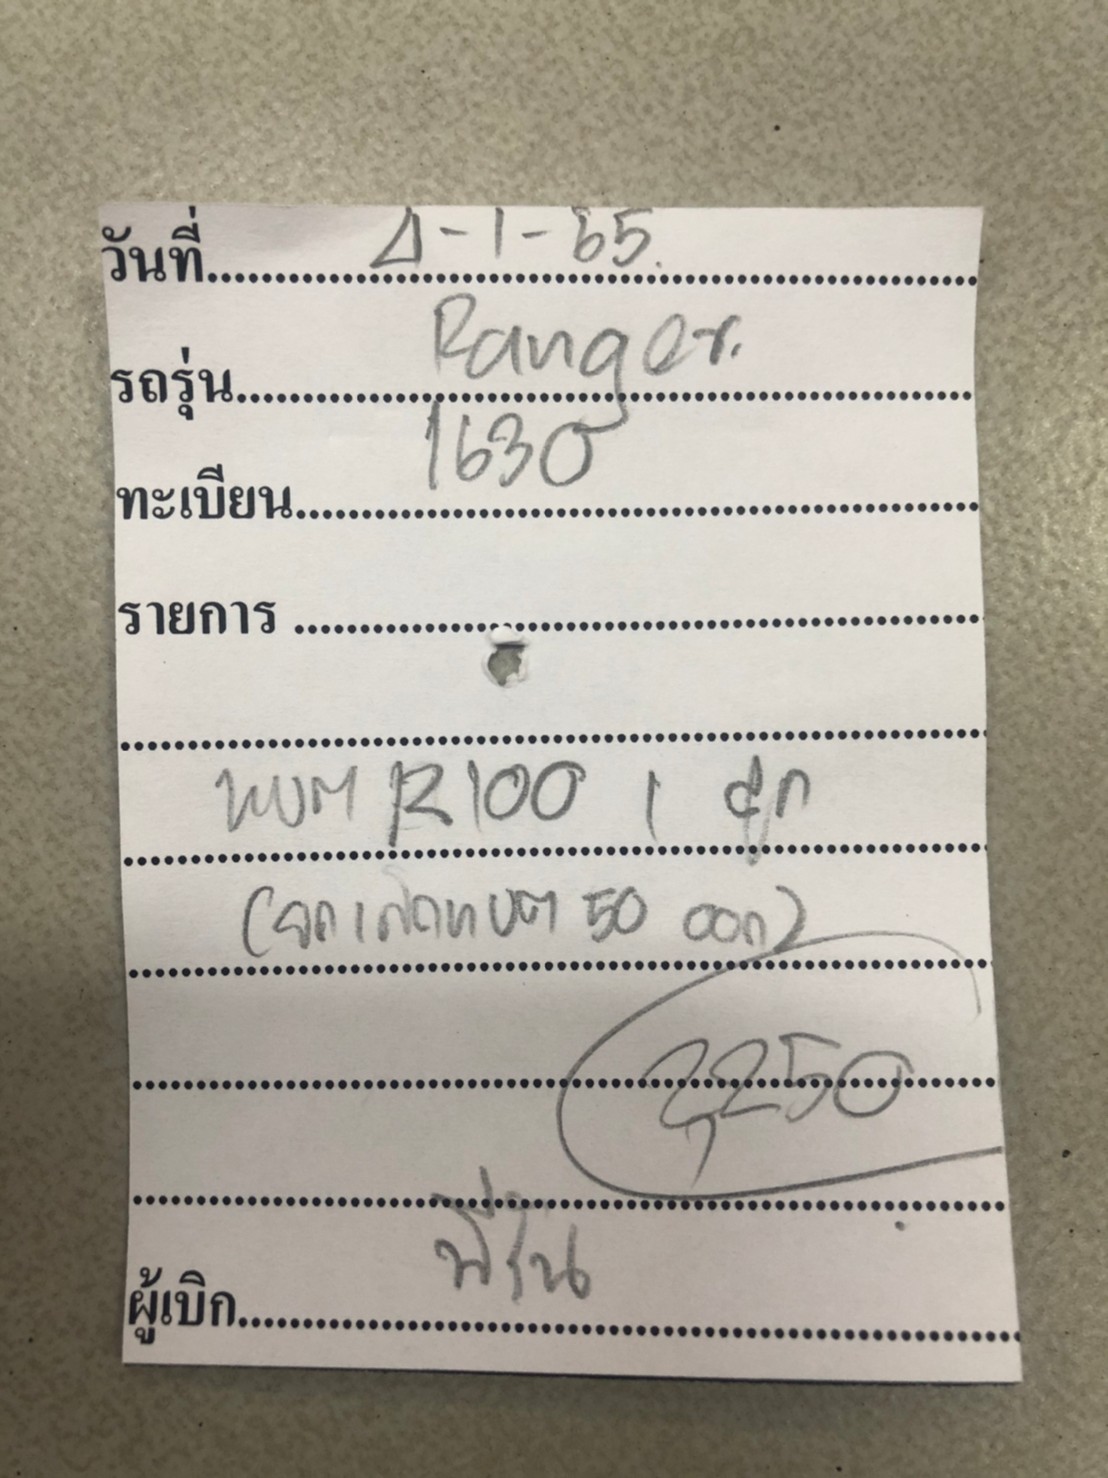 วันที่ 4-1-65.
รถรุ่น Ranger.
ทะเบียน 1630
รายการ
แบต R100 1 ลูก
(จดเครดิตแบต 50 ออก)
2,250
ผู้เบิก พี่รุ่น